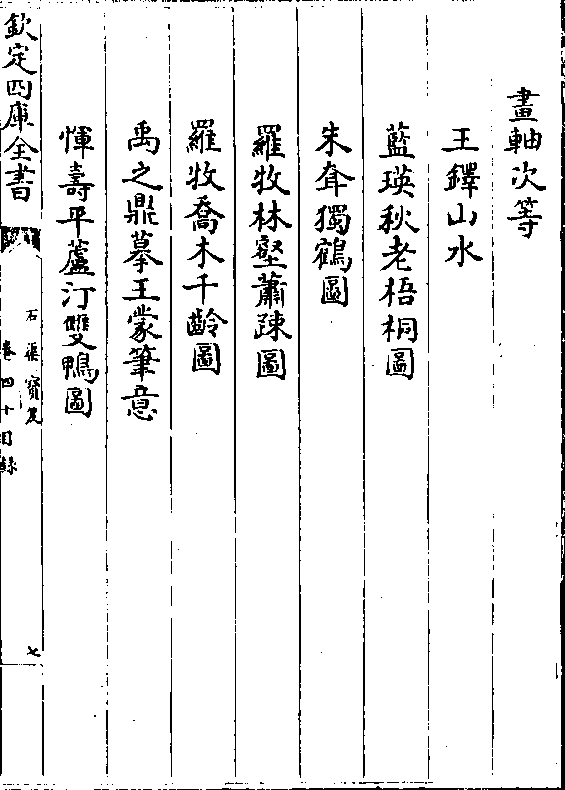 畫軸次等
王鐸山水
藍瑛秋老梧桐圖
朱耷獨鶴圖
羅牧林壑蕭疎圖
羅牧喬木千齡圖
禹之鼎摹王蒙筆意
惲壽平蘆汀雙鴨圖
欽定四庫全書
石渠寶笈
卷四十目錄
七